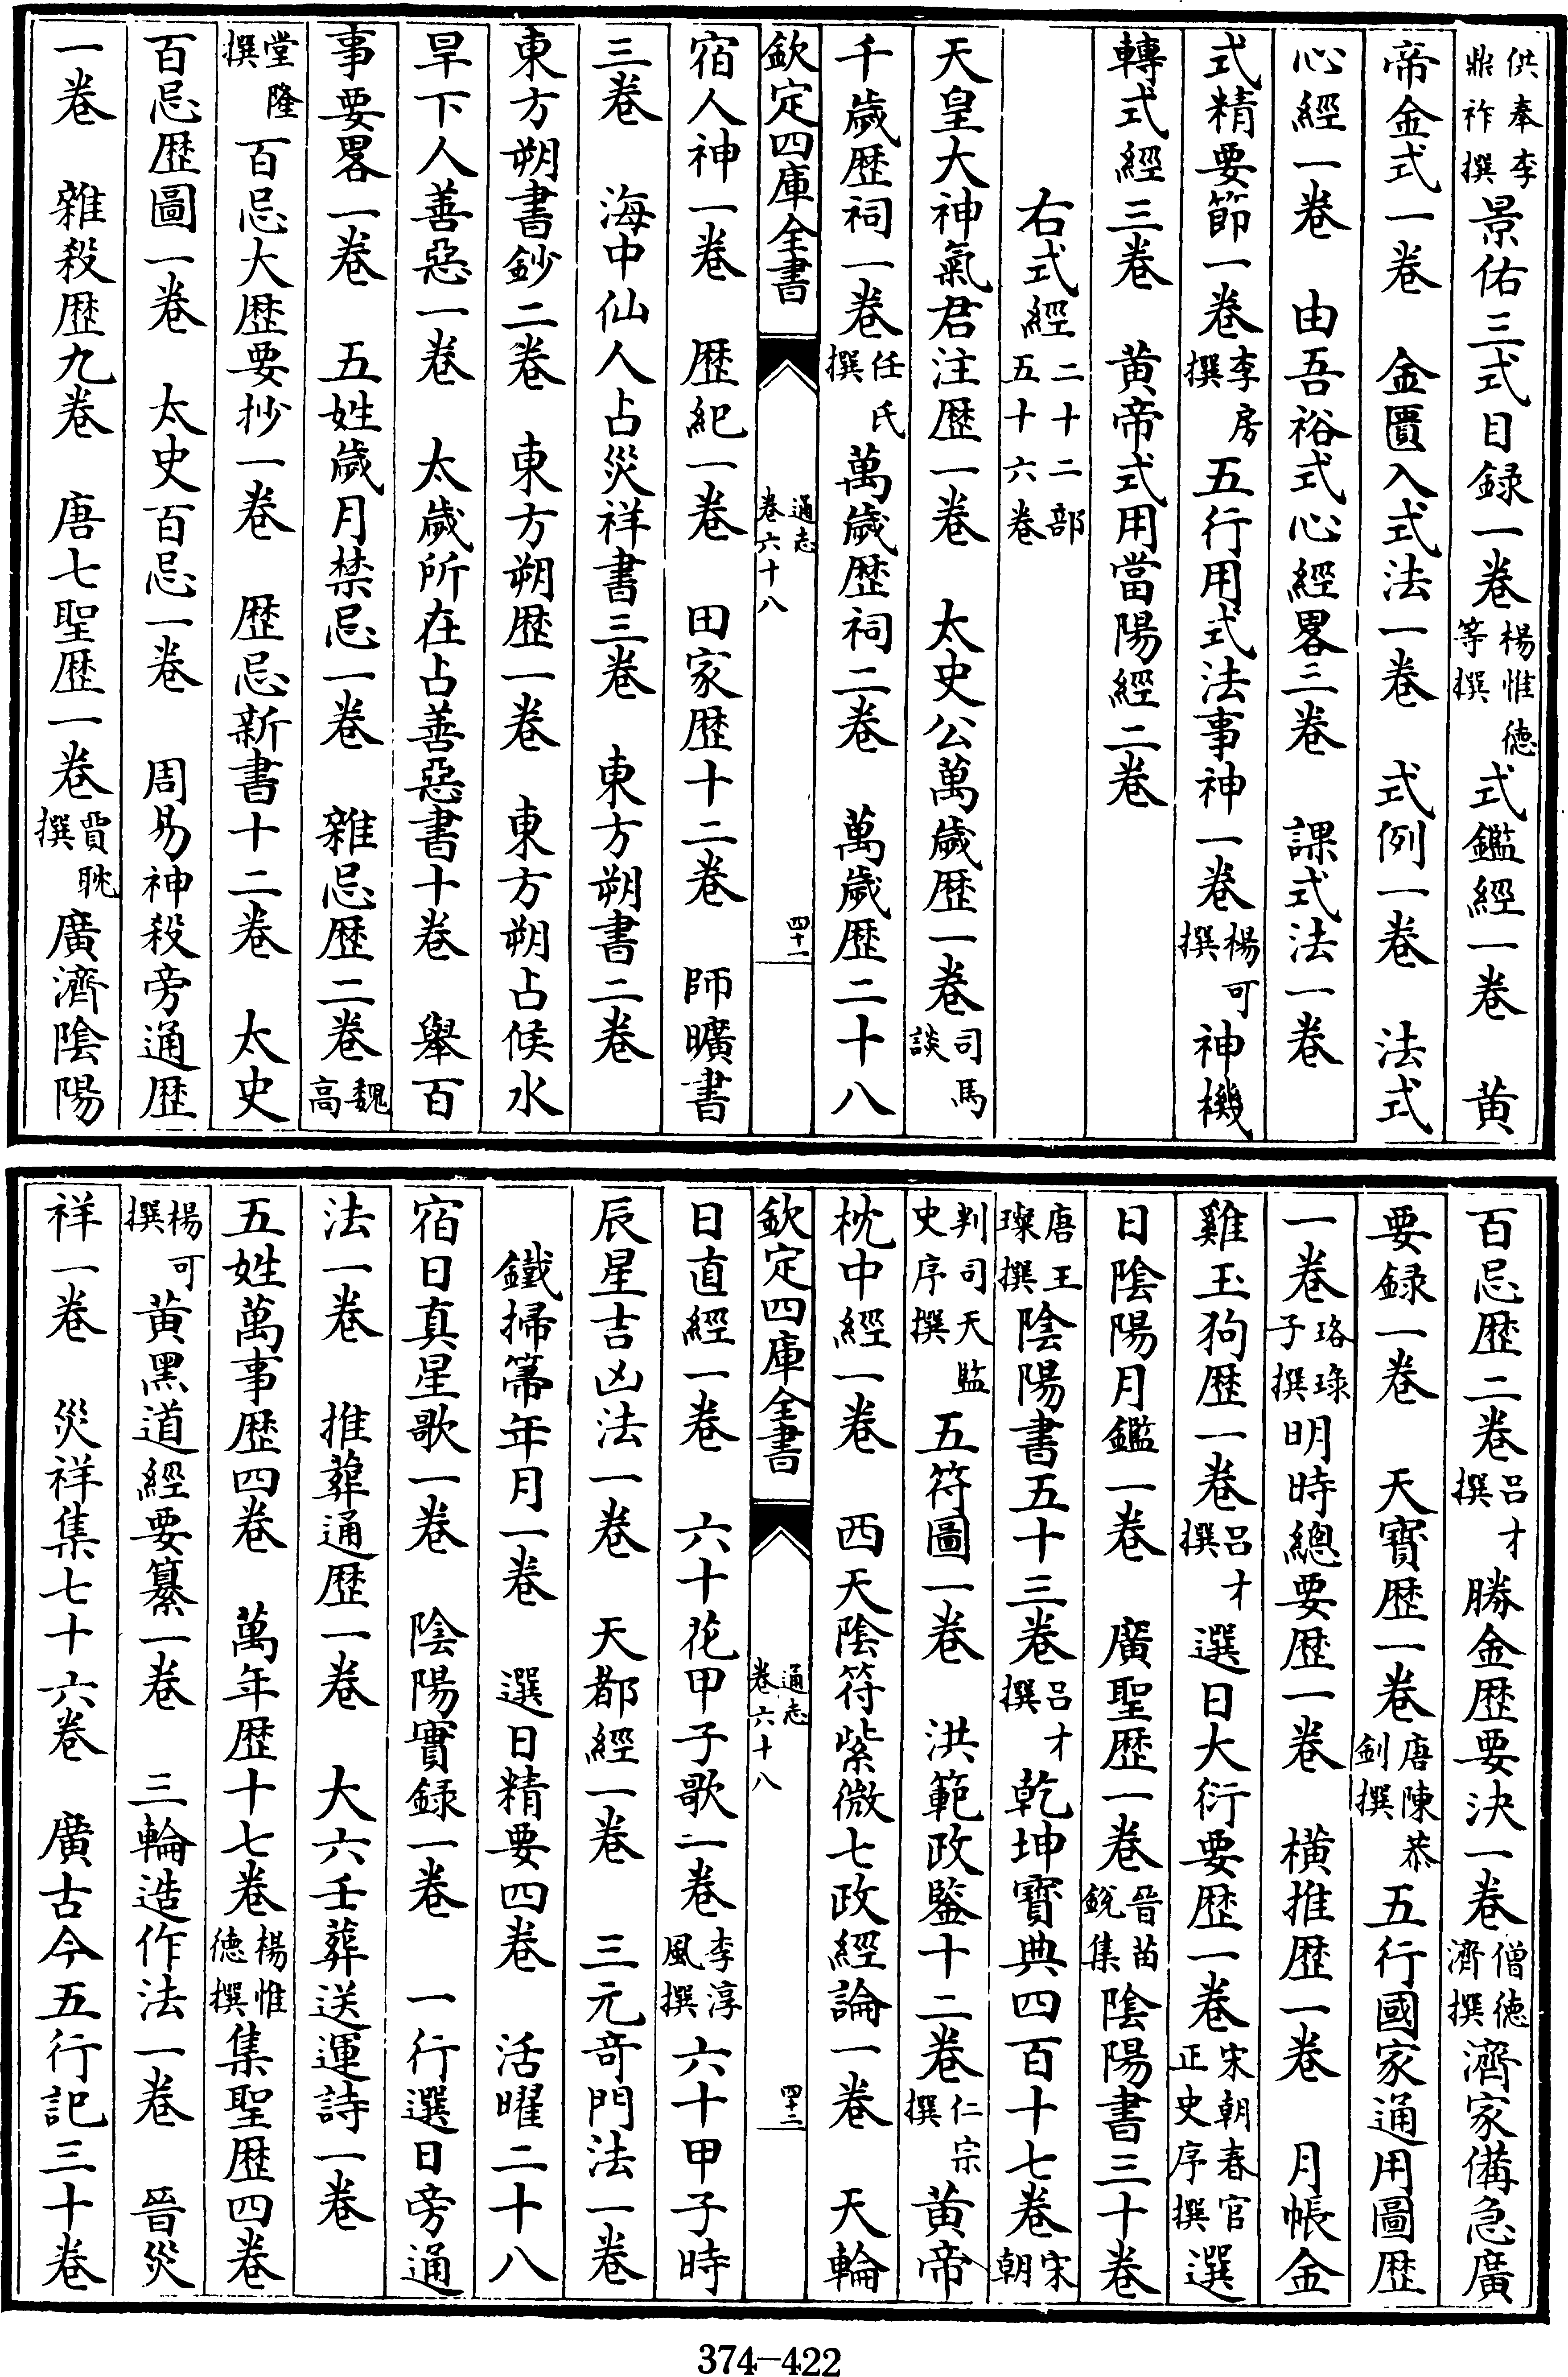 供奉李鼎祚撰景佑三式目録一卷楊惟德等撰式鑑經一卷　黄
帝金式一卷　金匱入式法一卷　式例一卷　法式
心經一卷　由吾裕式心經畧三卷　課式法一卷
式精要節一卷李房撰五行用式法事神一卷楊可撰神機
轉式經三卷　黄帝式用當陽經二卷
右式經二十二部五十六卷
天皇大神氣君注歴一卷　太史公萬歲歴一卷司馬談
千歲歴祠一卷任氏撰萬歲歴祠二卷　萬歲歴二十八
欽定四庫全書　通志卷六十八　四十一
宿人神一卷　歴紀一卷　田家歴十二卷　師曠書
三卷　海中仙人占災祥書三卷　東方朔書二卷
東方朔書鈔二卷　東方朔歴一卷　東方朔占候水
旱下人善惡一卷　太歲所在占善惡書十卷　舉百
事要畧一卷　五姓歲月禁忌一卷　雜忌歴二卷魏高
堂隆撰百忌大歴要抄一卷　歴忌新書十二卷　太史
百忌歴圖一卷　太史百忌一卷　周易神殺旁通歴
一卷　雜殺歴九卷　唐七聖歴一卷費耽撰廣濟陰陽
百忌歴二卷吕才撰勝金歴要決一卷僧德濟撰濟家備急廣
要録一卷　天寶歴一卷唐陳恭釗撰五行國家通用圖歴
一卷珞琭子撰明時總要歴一卷　横推歴一卷　月帳金
雞玉狗歴一卷吕才撰選日大衍要歴一卷宋朝春官正史序撰選
日陰陽月鑑一卷　廣聖歴一卷晉苗鋭集陰陽書三十卷
唐王璨撰陰陽書五十三卷吕才撰乾坤寶典四百十七卷宋朝
判司天監史序撰五符圖一卷　洪範政鑒十二卷仁宗撰黄帝
枕中經一卷　西天陰符紫微七政經論一卷　天輪
欽定四庫全書　通志卷六十八　四十二
日直經一卷　六十花甲子歌二卷李淳風撰六十甲子時
辰星吉凶法一卷　天都經一卷　三元奇門法一卷
鐵掃箒年月一卷　選日精要四卷　活曜二十八
宿日真星歌一卷　陰陽實録一卷　一行選日旁通
法一卷　推葬通歴一卷　大六壬葬送運詩一卷
五姓萬事歴四卷　萬年歴十七卷楊惟德撰集聖歴四卷
楊可撰黄黑道經要纂一卷　三輪造作法一卷　晉災
祥一卷　災祥集七十六卷　廣古今五行記三十卷
374-422